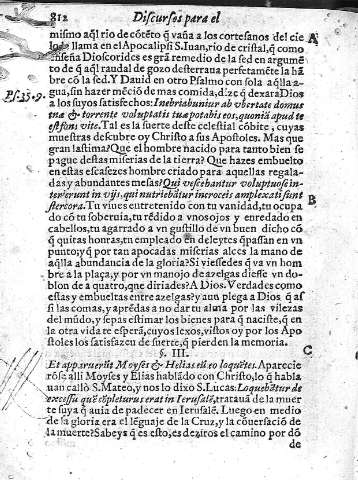 812 Discursos para el
mismo aql rio de cõtẽto q vaña a los cortesanos del cie
lo, le llama en el Apocalipsi S. Iuan, rio de cristal, q como
enseña Dioscorides es grã remedio de la sed en argumẽ
to de q aql raudal de gozo desterraua perfetamẽte la hã
bre cõ la sed. Y Dauid en otro Psalmo con sola aqlla a-
gua, sin hazer mẽciõ de mas comida, dize q dexarà Dios
Ps. 35. 9.
a los suyos satisfechos: Inebriabuntur ab vbertate domus
tuæ & torrente voluptatis tuæ potabis eos, quoniã apud te
est fons vitæ. Tal es la suerte deste celestial cõbite, cuyas
muestras descubre oy Christo a sus Apostoles. Mas que
gran lastima? Que el hombre nacido para tanto bien se
pague destas miserias de la tierra? Que hazes embuelto
en estas escasezes hombre criado para aquellas regala-
das y abundantes mesas? Qui vescebantur voluptuose in-
terierunt in vijs, qui nutriebãtur in croceis amplexati sunt
stercora. Tu viues entretenido con tu vanidad, tu ocupa
do cõ tu soberuia, tu rẽdido a vnos ojos y enredado en
cabellos, tu agarrado a vn gustillo de vn buen dicho cõ
q quitas honras, tu empleado en deleytes q passan en vn
punto, y q por tan apocadas miserias alces la mano de
aqlla abundancia de la gloria? Si viessedes q va vn hom
bre a la plaça, y por vn manojo de azelgas diesse vn do-
blon de a quatro, que diriades? A Dios. Verdades como
estas y embueltas entre azelgas? y aun plega a Dios q as
si las comas, y aprẽdas a no dar tu alma por las vilezas
del mũdo, y sepas estimar los bienes para q naciste, q en
la otra vida te esperã, cuyos lexos, vistos oy por los Apo
stoles los satisfaze de suerte, q pierden la memoria.
§. III.
Et apparuerũt Moyses & Helias cũ eo loquẽtes. Aparecie
rõse alli Moyses y Elias hablãdo con Christo, lo q habla
uan callò S. Mateo, y nos lo dixo S. Lucas: Loquebãtur de
excessu, quẽ cõpleturus erat in Ierusalẽ, tratauã de la muer
te suya q auia de padecer en Ierusalẽ. Luego en medio
de la gloria era el lẽguaje de la Cruz, y la cõuersaciõ de
la muerte? Sabeys q es esto, es deziros el camino por dõ
de
A
B
C